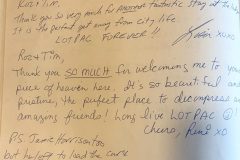 Roz & Tim,
Thank you so very much for another fantastic stay
It is the perfect get away from city life.
LOTPAC FOREVER !!
xoxo
Roz & Tim,
Thank you SO MUCH for welcoming me to your
piece of heaven here. It's so beautiful and
pristine, the perfect place to decompress w/
amazing friends! Long live LOTPAC @!
cheers, xo
P.S. Jamie Harrison too
but he left to load the car